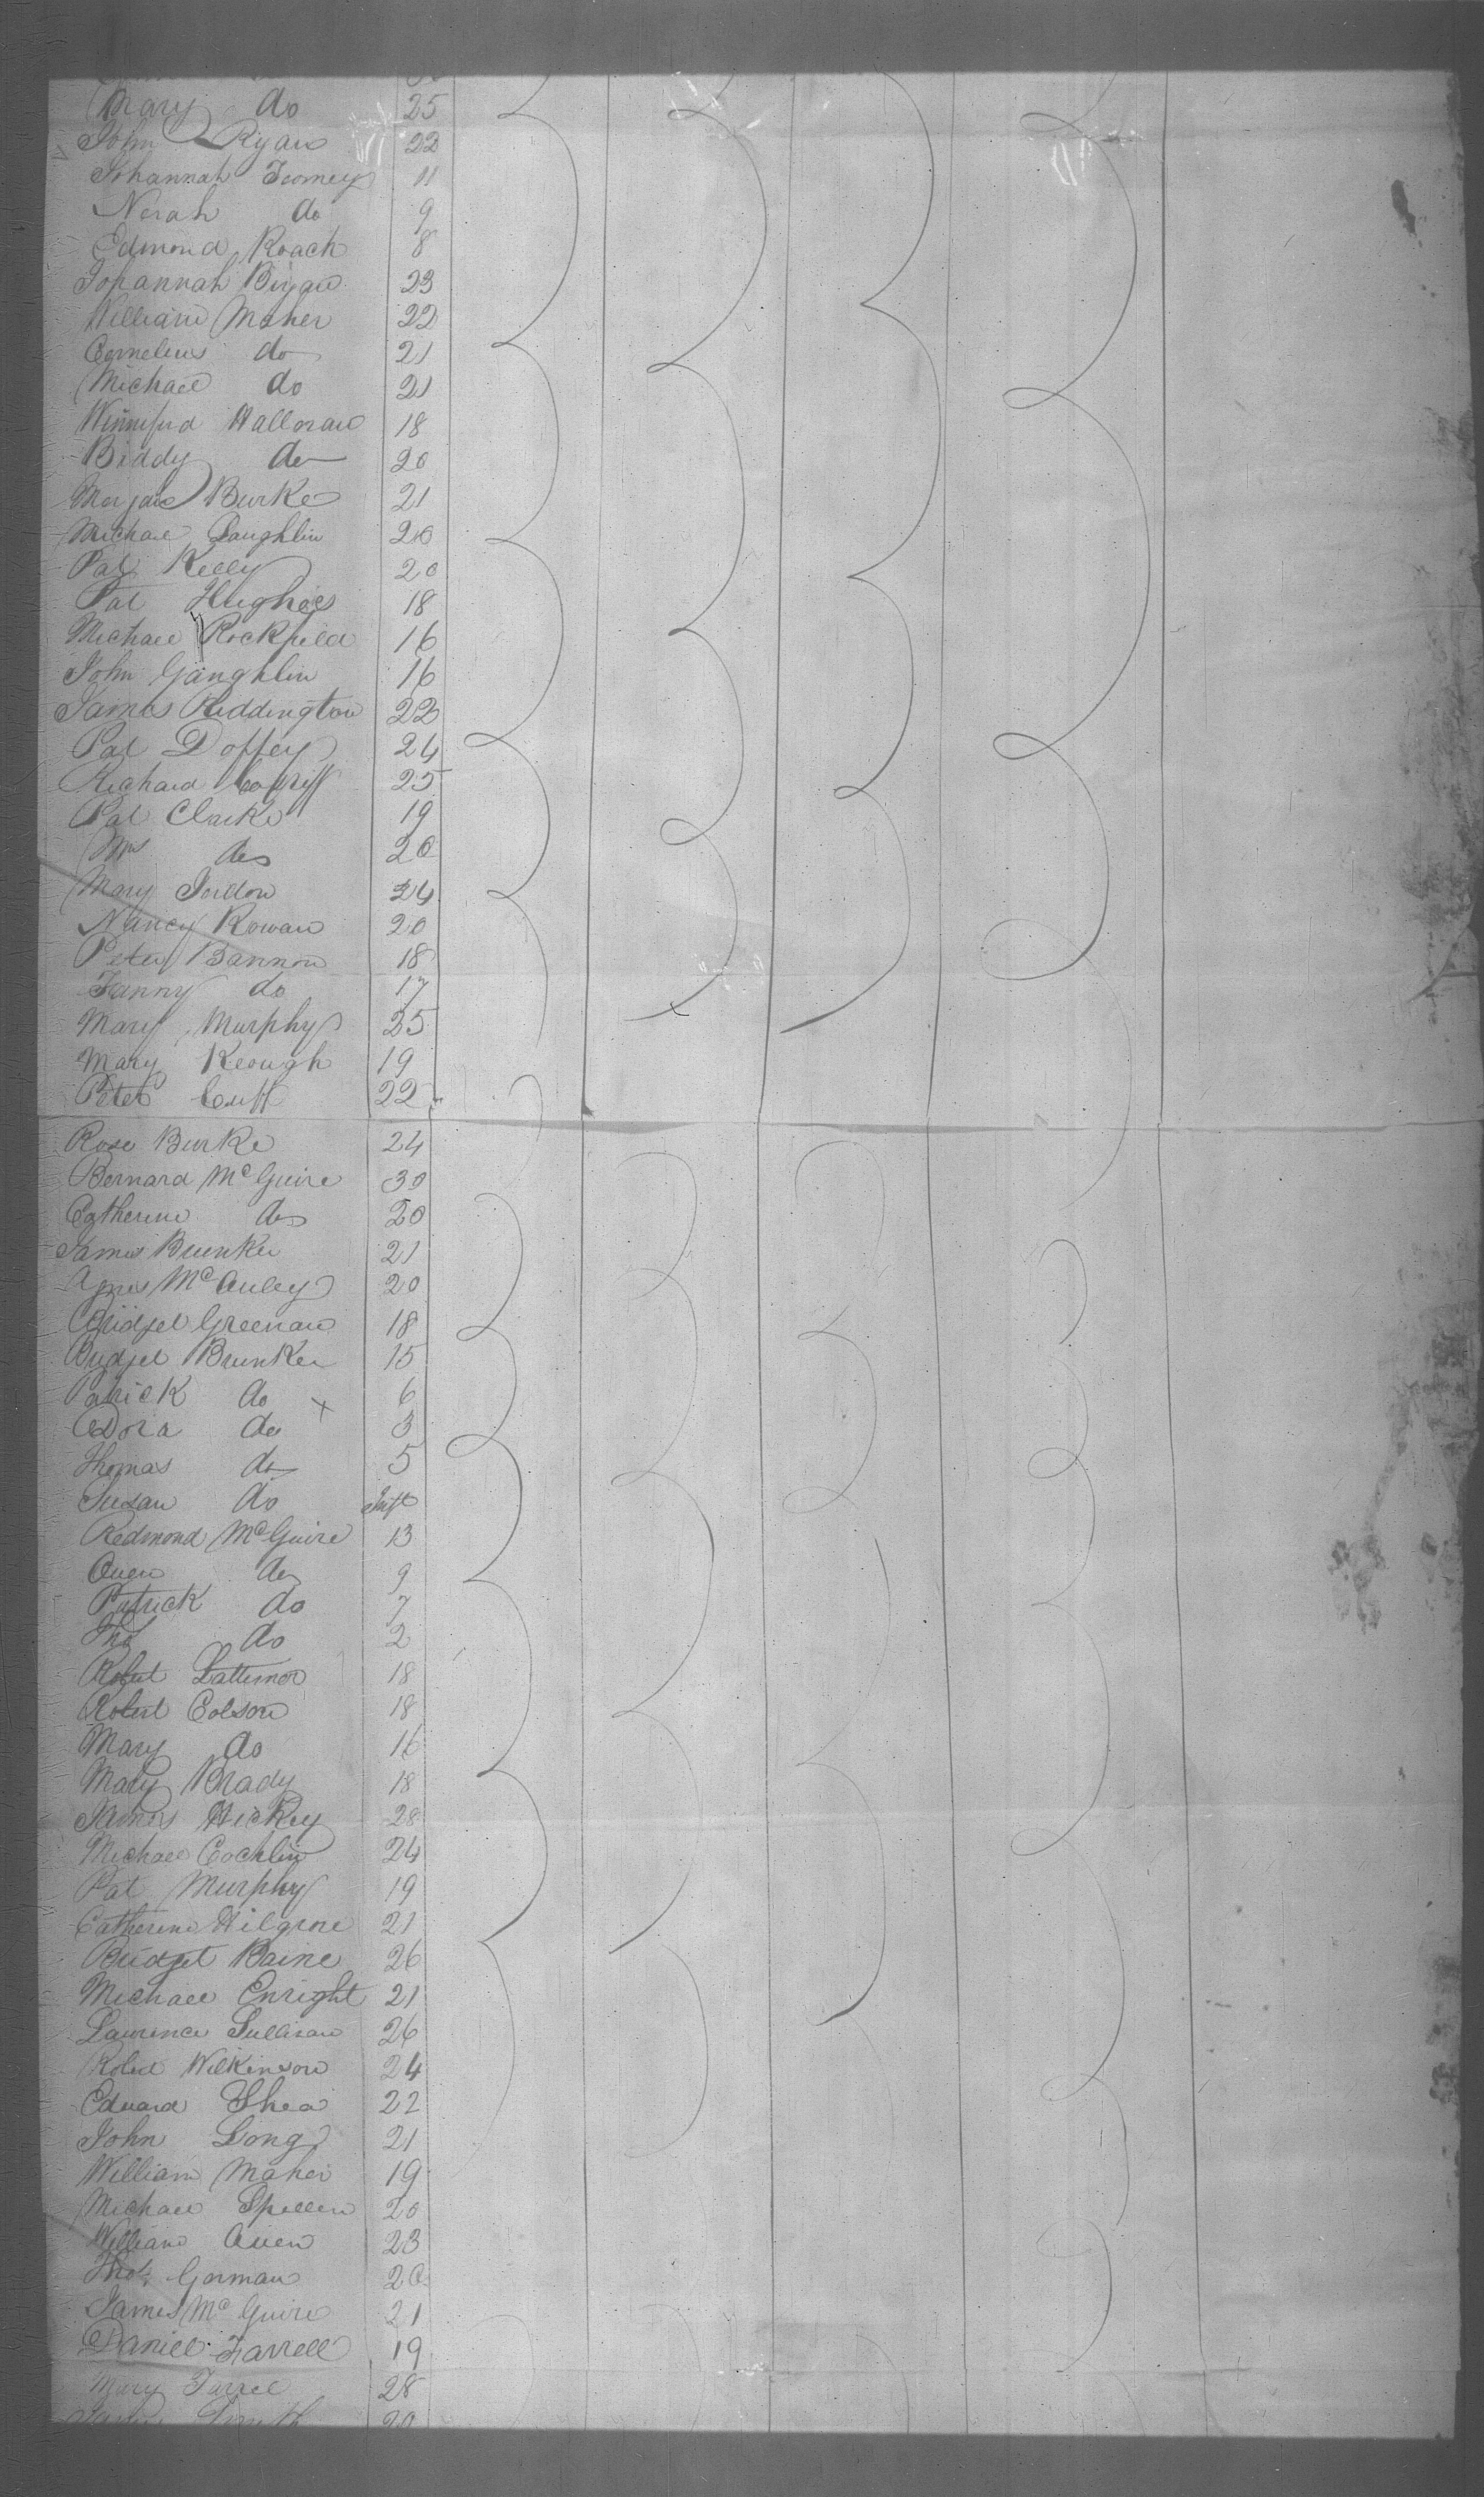 Mary do 25
John Ryan 22
Johannah Toomey 11
Norah do 9
Edmond Roach 8
Johannah Bryan 23
William Maher 22
Cornelius do 21
Michael do 21
Winnifred Halloran 18
Biddy do 20
Burke 21
Michael Laughlin 20
Pat Kelly 20
Pat Hughes 18
Michael Rockfield 16
John Gaughlin 16
James Riddington 22
Pat Doffey 24
Richard 25
Pat Clarke 19
Mrs do 20
Mary Jordon 24
Nancy Rowan 20
Peter Bannon 18
Fanny do 17
Mary Murphy 25
Mary Keough 19
Peter Cuff 22
Rose Burke 24
Bernard McGuire 30
Catherine do 20
James Brunker 21
Agnes McAuley 20
Bridget Greenan 18
Bridget Brunker 15
Patrick do x 6
Dora do 3
Thomas do 5
Susan do Inft
Redmond McGuire 13
Owen do 9
Patrick do 7
Thos do 2
Robert Lattimor 18
Robert Colson 18
Mary do 16
Mary Brady 18
James Hickey 28
Michael Cochlin 24
Pat Murphy 19
Catherine Hilgrove 21
Bridget Baine 26
Michael Enright 21
Lawrence Sullivan 26
Robert Wilkinson 24
Edward Shea 22
John Long 21
William Maher 19
Michael Spellen 20
William 23
Thos Gorman 20
James McGuire 21
Daniel Farrell 19
Mary Farrel 28
Smith 20